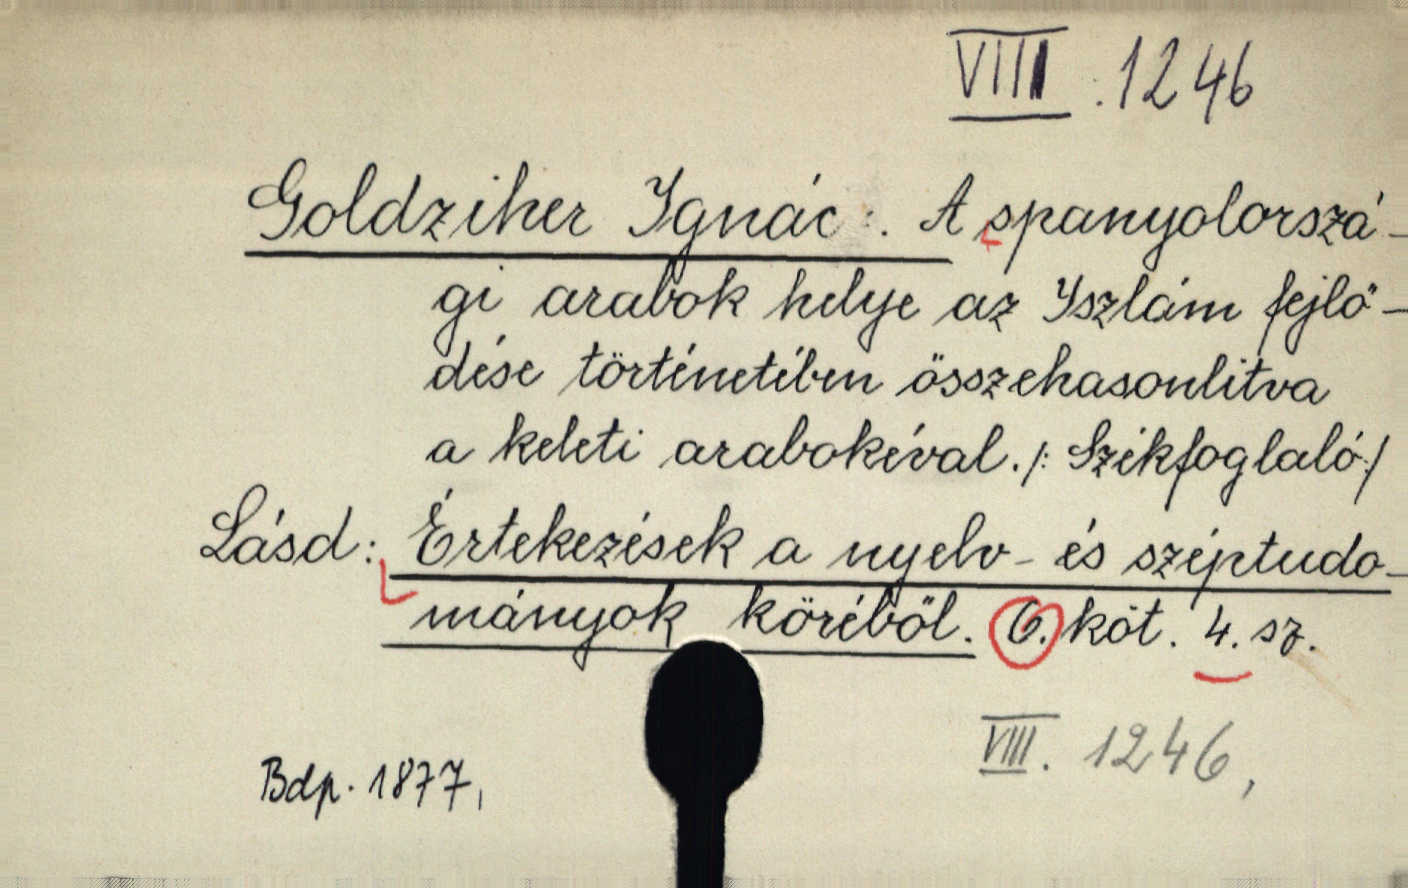 VIII. 1246
Goldziher Ignác:. A spanyolorszá-
gi arabok helye az Iszlám fejlő-
dése történetében összehasonlitva
a keleti arabokéval. /: Székfoglaló:/
Lásd: Értekezések a nyelv- és széptudo-
mányok köréből. 6. köt. 4. sz.
VIII. 1246,
Bdp. 1877,